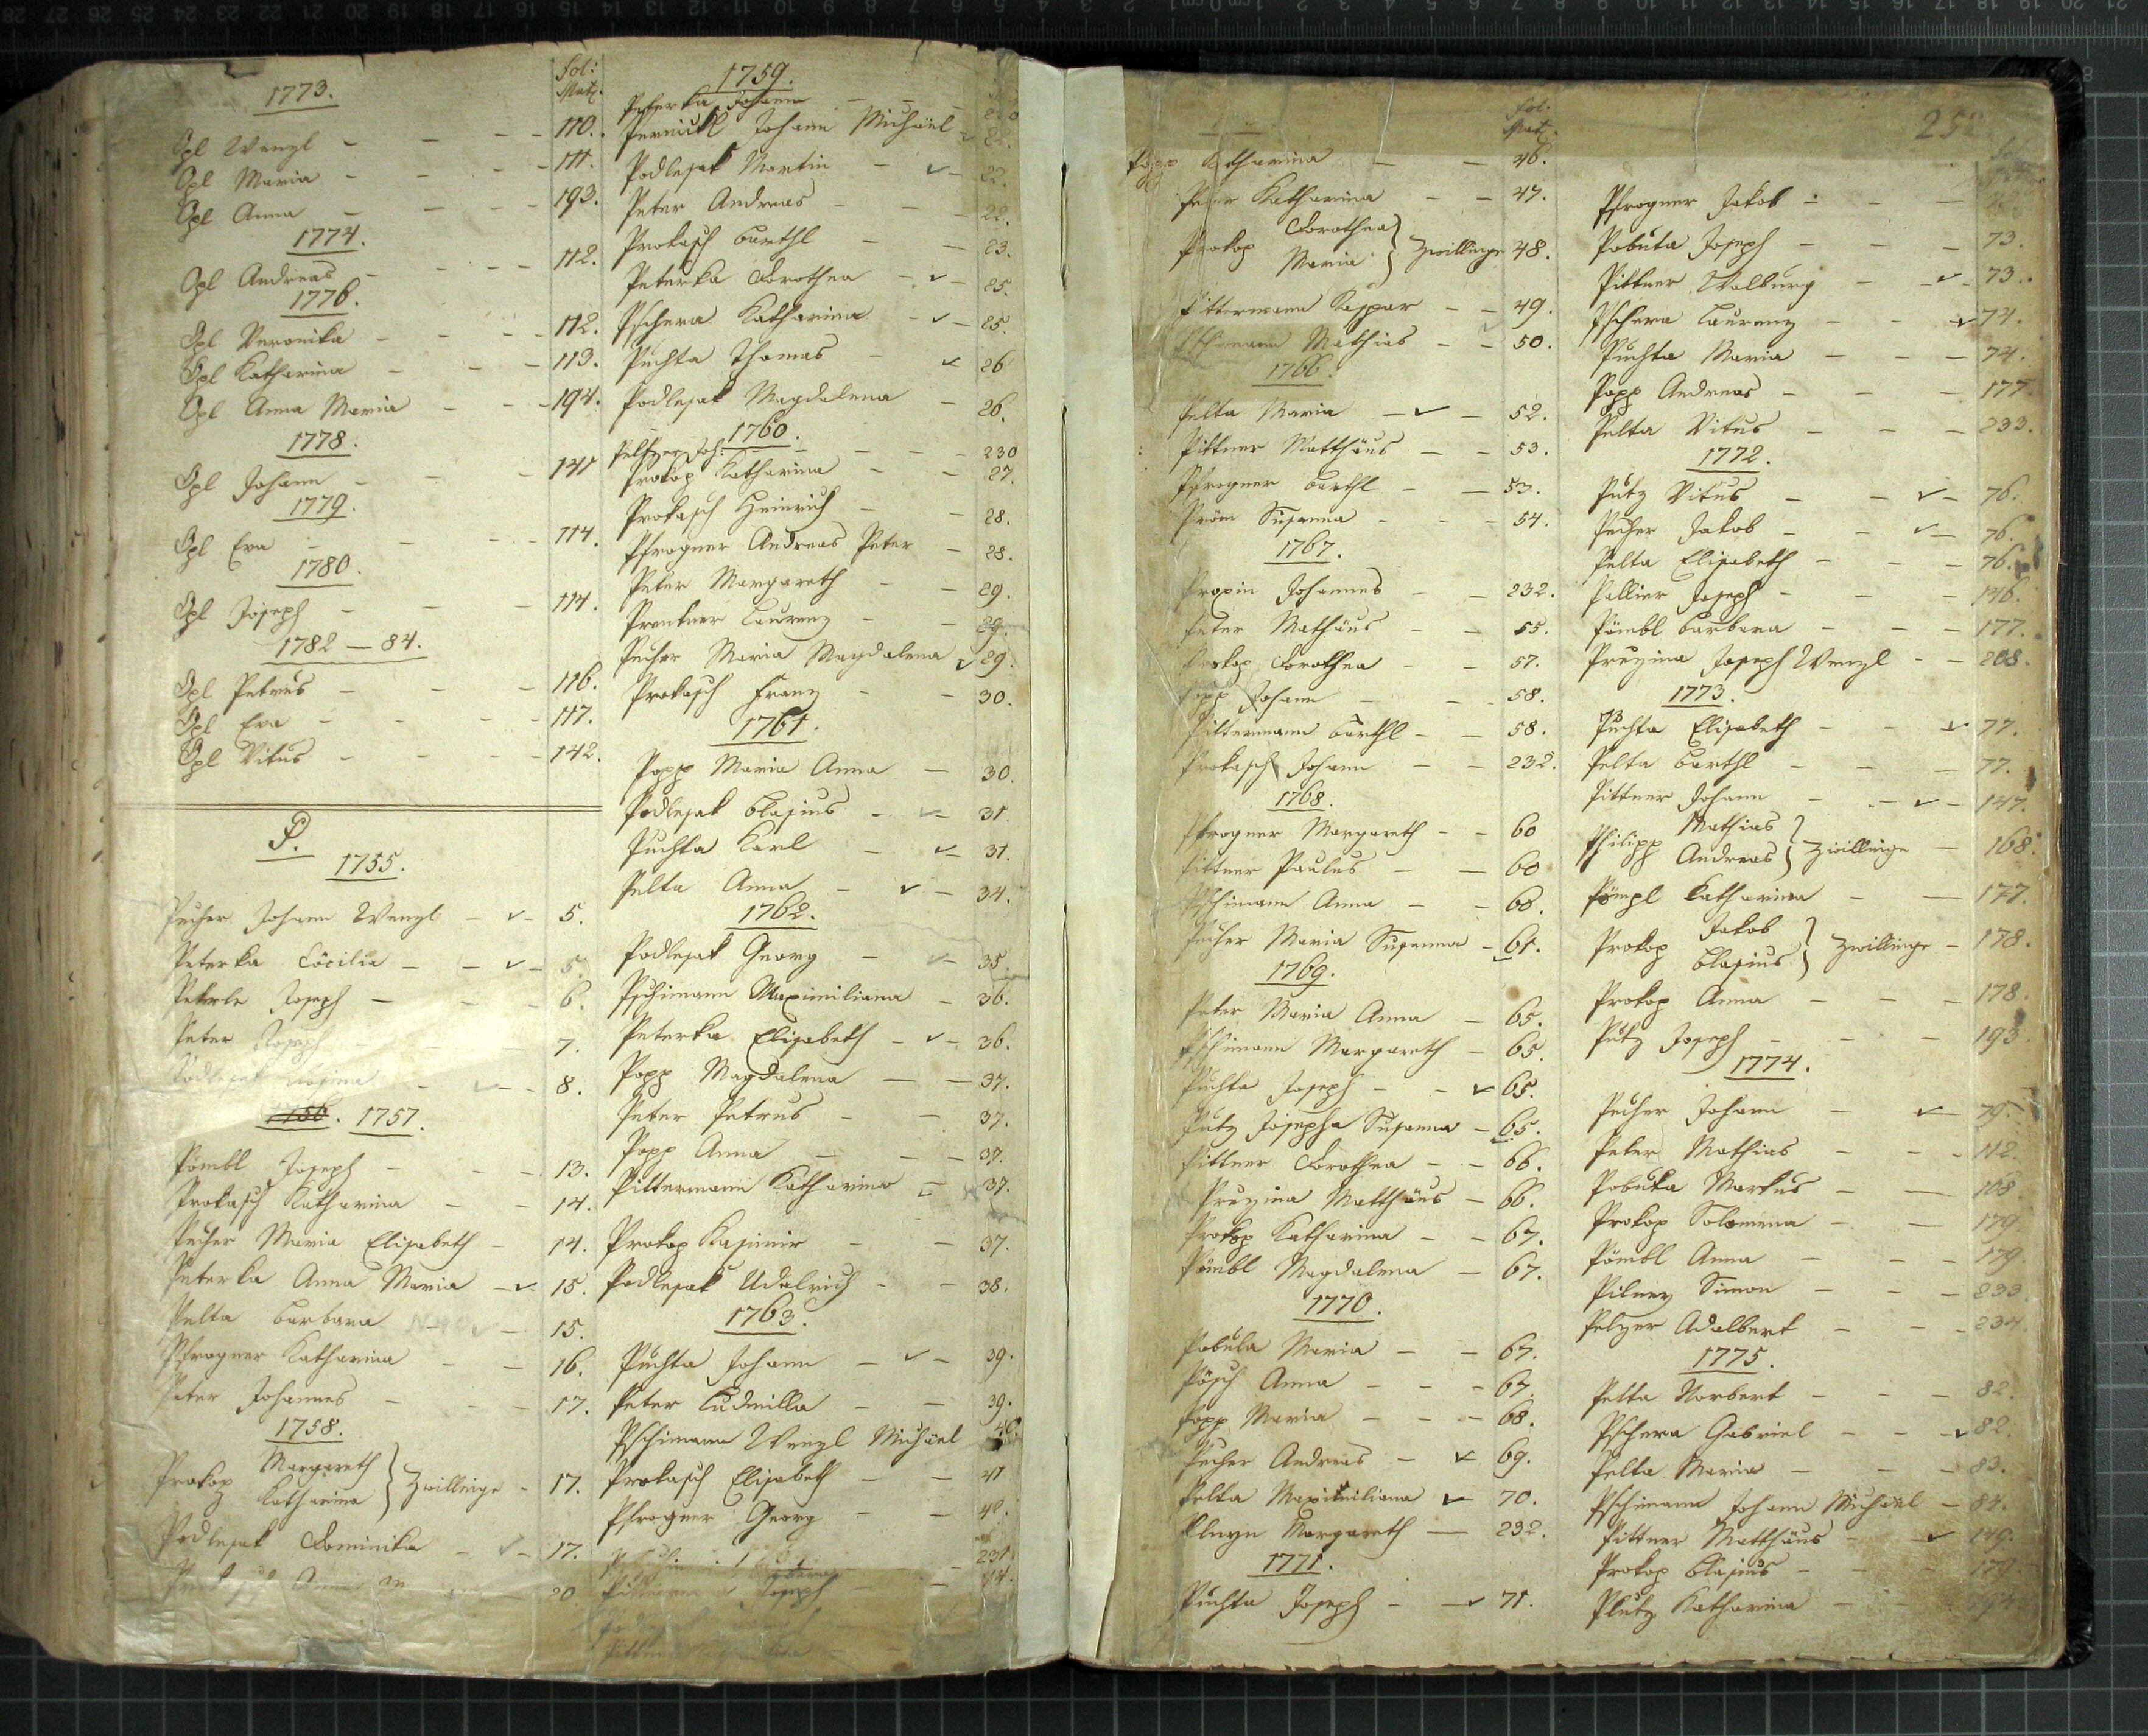 fol:
Mat.
1773.
Opl Wenzl - - - 110.
Opl Maria - - - 111.
Opl Anna - - - 193.
1774.
Opl Andreas - - - 112.
1776.
Opl Veronika - - - 112.
Opl Katharina - - - 113.
Opl Anna Maria - - 194.
1778.
Opl Johann - - - 141
1779.
Opl Eva - - - 114.
1780.
Opl Joseph - - - 114.
1782 - 84.
Opl Petrus - - - 116.
Opl Eva - - - 117.
Opl Vitus - - - 142.
P.
1755.
Pucher Johann Wenzl - ✓ - 5.
Peterka Cöcilia - - ✓ - 5.
Peterle Joseph - - - 6.
Peter Joseph - 7.
Podlesak - ✓ - 8.
1756. 1757.
Pömbl Joseph - - - 13.
Prokasch Katharina - - 14.
Pucher Maria Elisabeth - 14.
Peterka Anna Maria - ✓ 15.
Pelta Barbara - ✓ - 15.
Pfrogner Katharina - - 16.
Peter Johannes - - - 17.
1758.
Prokop Margareth
Katharina } Zwillinge - 17.
Podlesak Dominika - ✓ - 17.
20.
1759.
Peterka Johann - - -
Pernickl Johann Michael - 22.
Podlesak Martin - ✓ - 22.
Peter Andreas - - - 22.
Prokasch Barthl - - 23.
Peterka Dorothea - ✓ - 25.
Pschera Katharina - ✓ - 25.
Puchta Thomas - ✓ 26
Podlesak Magdalena - 26.
1760.
Peltzer Joh. - - - 230
Prokop Katharina - - 27.
Prokasch Heinrich - - 28.
Pfrogner Andreas Peter - 28.
Peter Margareth - - 29.
Prentner Laurenz - - 29.
Pucher Maria Magdalena ✓ 29.
Prokasch Franz - - 30.
1761.
Popp Maria Anna - 30.
Podlesak Blasius - ✓ - 31.
Puchta Karl - ✓ - 31.
Pelta Anna - ✓ - 34.
1762.
Podlesak Georg - ✓ - 35.
Pschimann Maximiliana - 36.
Peterka Elisabeth - ✓ - 36.
Popp Magdalena - - 37.
Peter Petrus - - 37.
Popp Anna - - - 37.
Pittermann Katharina - 37.
Prokop Kasimir - - 37.
Podlesak Udalrich - - 38.
1763.
Puchta Johann - ✓ - 39.
Peter Ludmilla - - 39.
Pschimann Wenzl Michael 40.
Prokasch Elisabeth - - 41
Pfrogner Georg - - 42.
231.
Joseph - - 44.
fol:
Mat.
Popp Katharina - - 46.
Peter Katharina - - 47.
Prokop Dorothea
Maria } Zwillinge 48.
Pittermann Kaspar - - 49.
Pschimann Mathias - - 50.
1766.
Pelta Maria - ✓ - 52.
Pittner Matthäus - - 53.
Pfrogner Barthl - - 53.
Susanna - - - 54.
1767.
Johannes - - 232.
Peter Mathäus - - 55.
Prokop Dorothea - - 57.
Popp Johann - - - 58.
Pittermann Barthl - - 58.
Prokasch Johann - - 232.
1768.
Pfrogner Margareth - - 60
Pittner Paulus - - 60
Pschimann Anna - - 60.
Pucher Maria Susanna - 61.
1769.
Peter Maria Anna - 65.
Pschimann Margareth - 65.
Puchta Joseph - - ✓ 65.
Putz Josepha Susanna - 65.
Pittner Dorothea - - 66.
Pruzina Matthäus - 66.
Prokop Katharina - - 67.
Pömbl Magdalena - 67.
1770.
Pobuta Maria - - 67.
Pösch Anna - - - 67.
Popp Maria - - - 68.
Pucher Andreas - ✓ 69.
Pelta Maximiliana ✓ 70.
Margareth - 232.
1771.
Puchta Joseph - - ✓ 71.
25
Pfrogner Jakob - - -
Pobuta Joseph - - - 73.
Pittner Walburg - - ✓ - 73.
Pschera Laurenz - - ✓ 74.
Puchta Maria - - - 74.
Popp Andreas - - - 177
Pelta Vitus - - - 233.
1772.
Putz Vitus - - ✓ - 76.
Pucher Jakob - - ✓ - 76.
Pelta Elisabeth - - - 76.
Pallier Joseph - - - 146.
Pömbl Barbara - - - 177.
Pruzina Joseph Wenzl - - 208.
1773.
Puchta Elisabeth - - ✓ 77.
Pelta Barthl - - - 77.
Pittner Johann - - ✓ - 147.
Philipp Mathias
Andreas } Zwillinge - 168.
Pömpl Katharina - - 177.
Prokop Jakob
Blasius } Zwillinge - 178.
Prokop Anna - - - 178.
Putz Joseph - - - 193
1774.
Pucher Johann - ✓ - 79.
Peter Mathias - - - 112.
Pobuta Markus - - 168
Prokop Solomena - - 179.
Pömbl Anna - - - 179.
Pilney Simon - - - 233.
Pelzer Adalbert - - - 234.
1775.
Pelta Norbert - - - 82.
Pschera Gabriel - - - ✓ 82.
Pelta Maria - - - 83.
Pschimann Johann Michael - 84.
Pittner Matthäus - - ✓ 149.
Prokop Blasius - - - 179
Plutz Katharina -